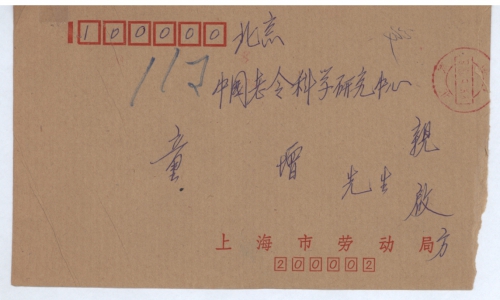 100000 北京
112
中国老令科学研究中心
童 增 先生 親啟
上海市劳动局 方
200002